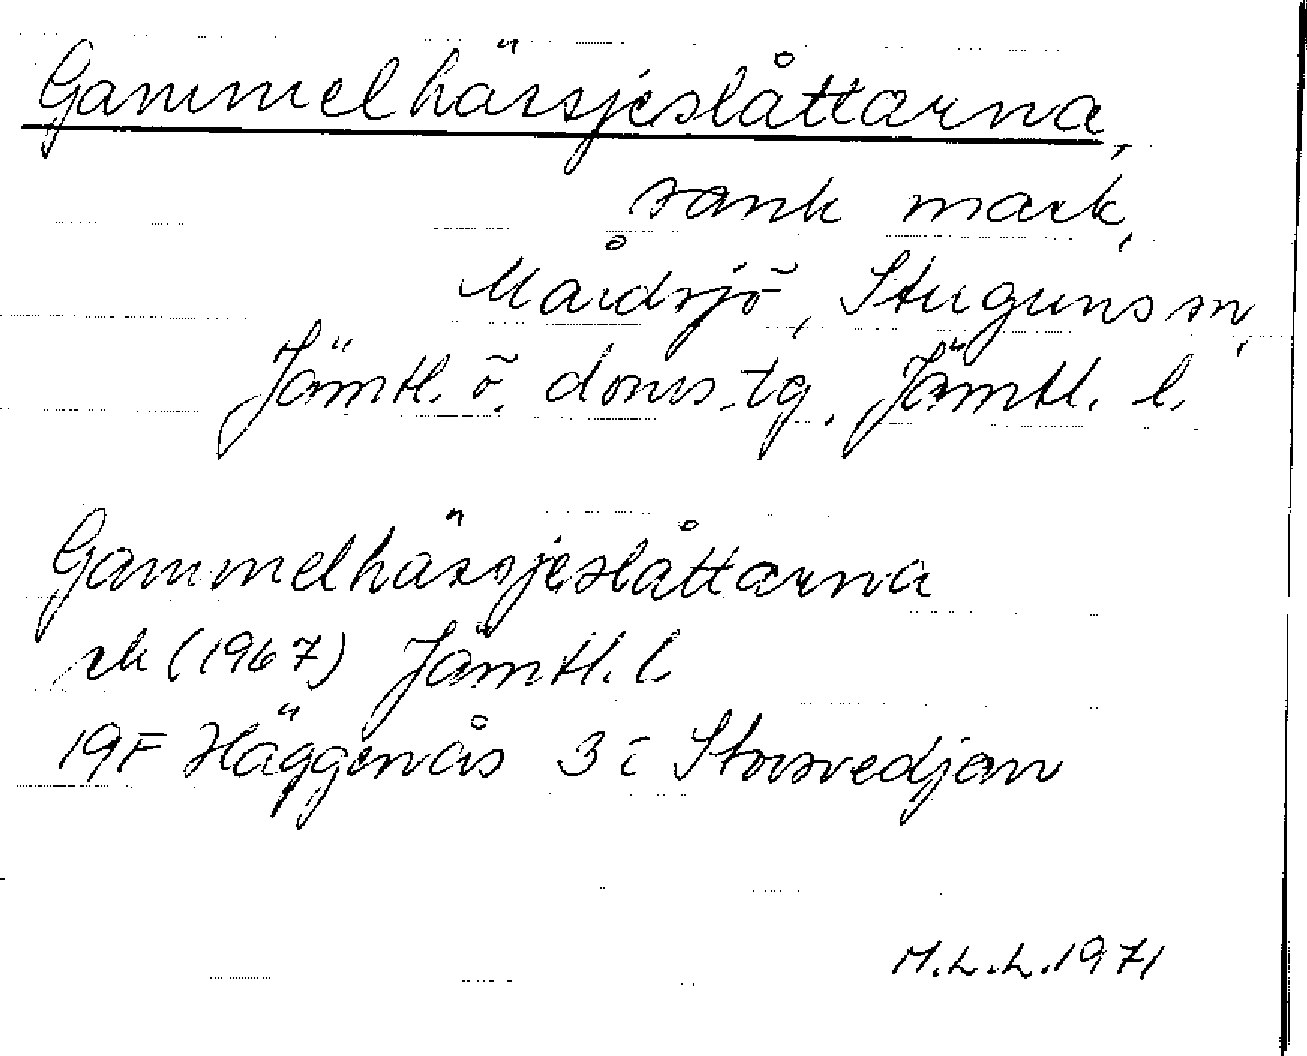 Gammelhässjeslåttarna,
sank mark,
Mårdsjö, Stuguns sn,
Jämtl. ö. doms.tg. Jämtl. l.
Gammelhässjeslåttarna
ek (1967) Jämtl. l
19F Häggenås 3 i Storsvedjan
M.L.L. 1971